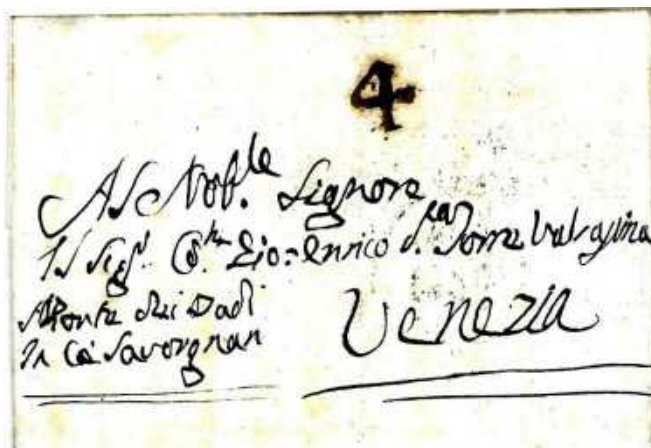 4
Al Nob.le Signore
Il Sig.r Co. Gio: Enrico d.a Torre Valvasina
Al Ponte dei Dadi
In Cà Savorgnan
Venezia